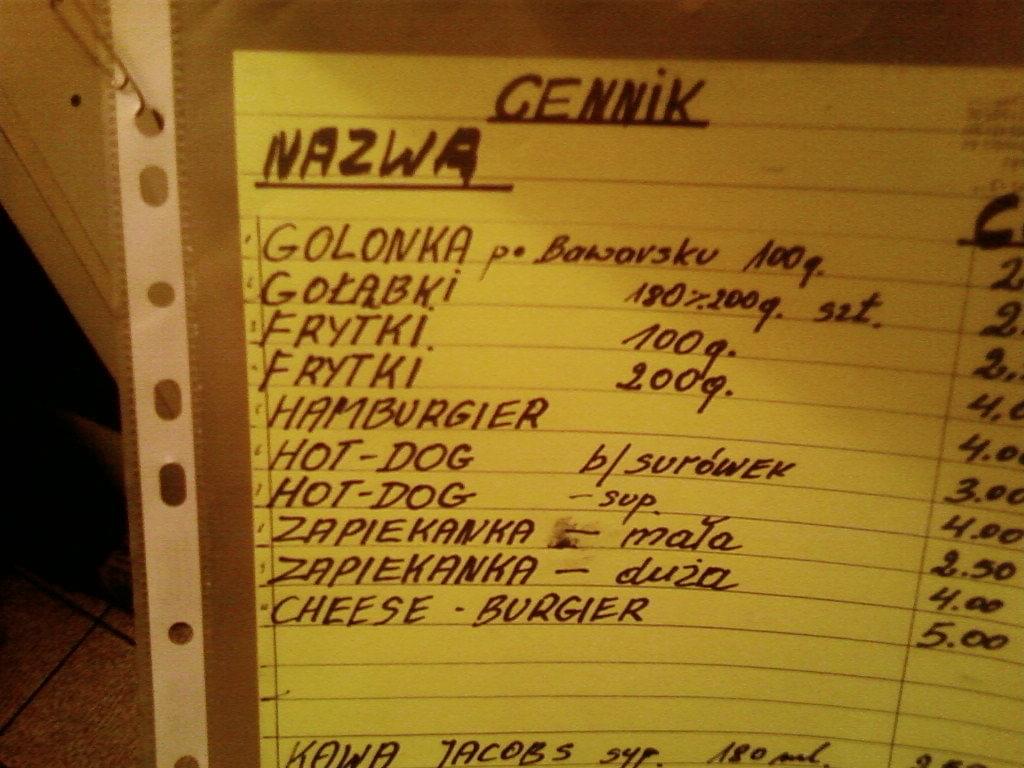 CENNIK
NAZWA
GOLONKA po Bawarsku 100g. 2
GOŁĄBKI 180%200g. szt. 2.
FRYTKI. 100g. 2.
FRYTKI 200g. 4.0
HAMBURGIER 4.00
HOT-DOG b/surówek 3.00
HOT-DOG - sup. 4.00
ZAPIEKANKA - mała 2.50
ZAPIEKANKA - duża 4.00
CHEESE - BURGIER 5.00
KAWA JACOBS syp. 180 ml.